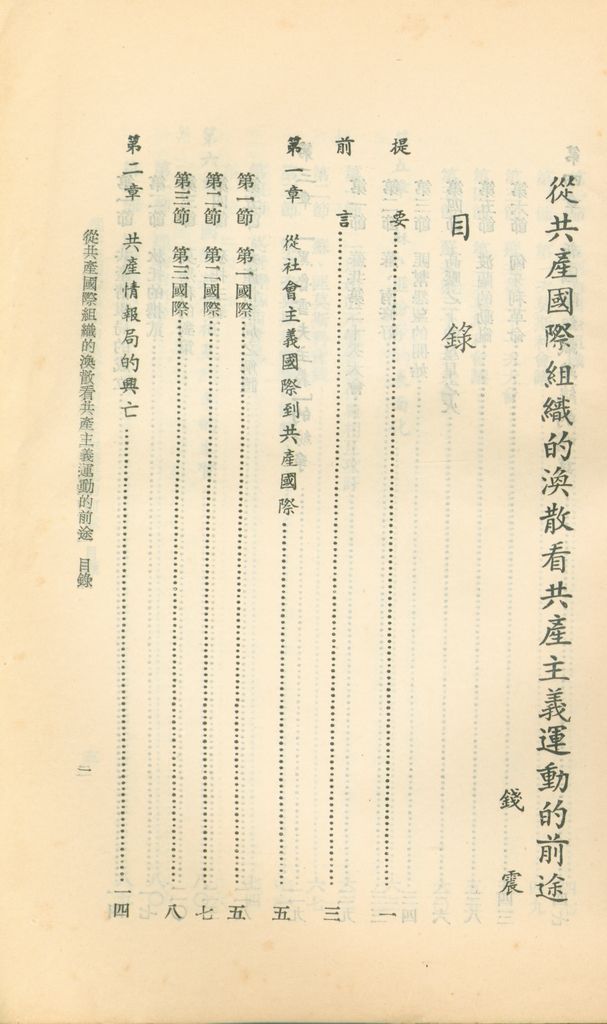 從共產國際組織的渙散看共產主義運動的前途
錢震
目錄
提要……一
前言……三
第一章 從社會主義國際到共產國際……五
第一節 第一國際……五
第二節 第二國際……七
第三節 第三國際……八
第二章 共產情報局的興亡……一四
從共產國際組織的渙散看共產主義運動的前途 目錄
一